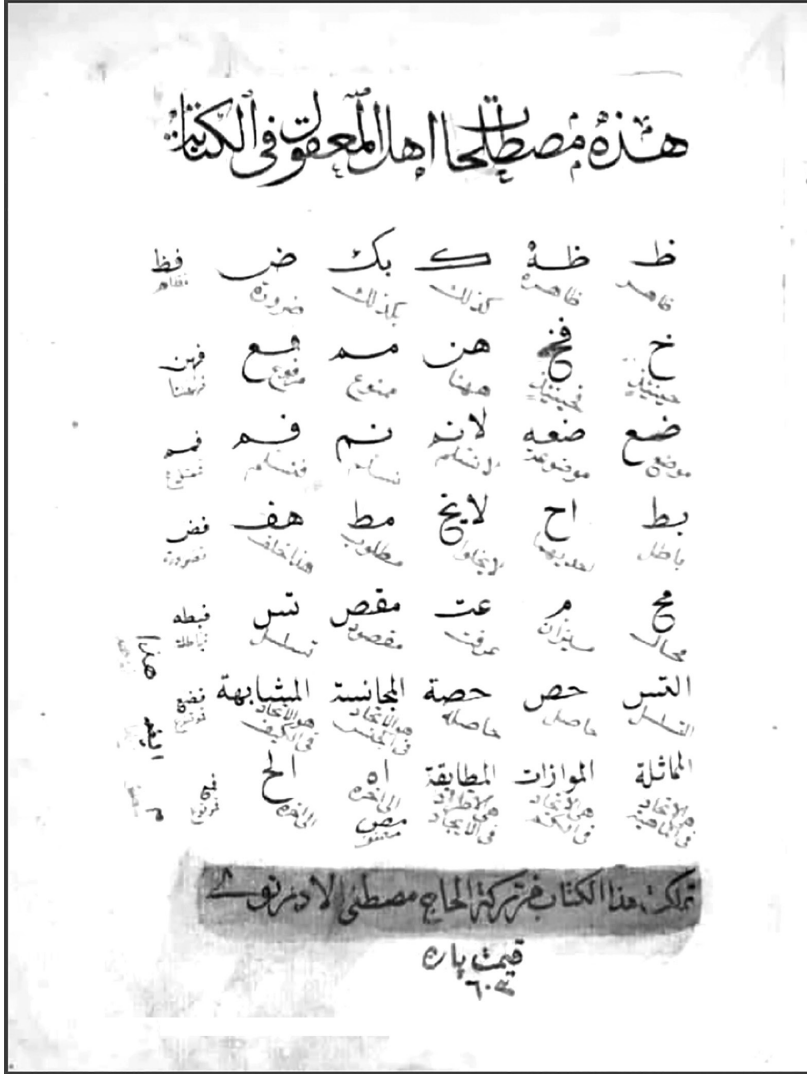 هذه مصطلحات اهل المعقول في الكتابة
ظ ظه ك بك ض فظ
ظاهر ظاهره كذلك بكذلك ضرورة
ح فح هن مم فع فهن
حينئذٍ فحينئذٍ ههنا ممنوع مرفوع فههنا
ضع ضعه لانم نم فم فمم
موضع موضوعة لا نسلم نسلم فنسلم فممنوع
بط اح لايخ مط هف فض
باطل لا يخلوا مطلوب هذا خلف
مح م عت مقص تس فبطه
محال عرفت مقصود تسلسل
التس حص حصة المجانسة المشابهة فضع
التسلسل حاصل حاصله هو الاتحاد في الجنس هو الاتحاد في الكيف
المماثلة الموازات المطابقة اه الخ
هي الاتحاد في الماهية هي الاتحاد في هي الاتحاد في الى اخره الى اخره
مص
هذا
تملكت هذا الكتاب من تركة الحاج مصطفى
قيمت پاره
٦٠